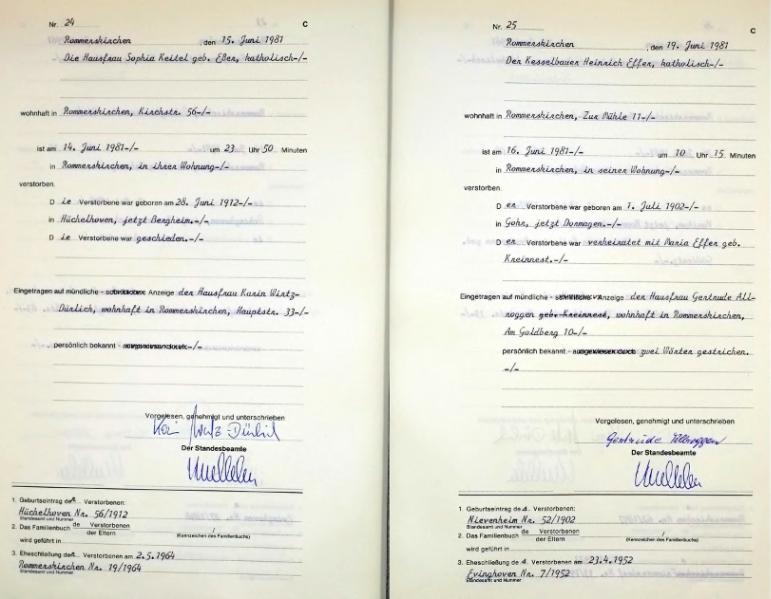 Nr. 24
C
Rommerskirchen, den 15. Juni 1981
Die Hausfrau Sophia Keitel geb. Eßer, katholisch-/-
wohnhaft in Rommerskirchen, Kirchstr. 56-/-
ist am 14. Juni 1981-/- um 23 Uhr 50 Minuten
in Rommerskirchen, in ihrer Wohnung-/-
verstorben.
D ie Verstorbene war geboren am 28. Juni 1912-/-
in Hüchelhoven, jetzt Bergheim.-/-
D ie Verstorbene war geschieden.-/-
Eingetragen auf mündliche - schriftliche - Anzeige der Hausfrau Karin Wirtz-
Dürlich, wohnhaft in Rommerskirchen, Hauptstr. 33-/-
persönlich bekannt -/-
Vorgelesen, genehmigt und unterschrieben
Wirtz-Dürlich
Der Standesbeamte
1. Geburtseintrag der Verstorbenen:
Hüchelhoven Nr. 56/1912
Standesamt und Nummer
2. Das Familienbuch de Verstorbenen
der Eltern
(Kennzeichen des Familienbuchs)
wird geführt in
3. Eheschließung der Verstorbenen am 2.5.1964
Rommerskirchen Nr. 19/1964
Standesamt und Nummer
Nr. 25
C
Rommerskirchen, den 19. Juni 1981
Der Kesselbauer Heinrich Effer, katholisch-/-
wohnhaft in Rommerskirchen, Zur Mühle 11-/-
ist am 16. Juni 1981-/- um 10 Uhr 15 Minuten
in Rommerskirchen, in seiner Wohnung-/-
verstorben.
D er Verstorbene war geboren am 1. Juli 1902-/-
in Gohr, jetzt Dormagen.-/-
D er Verstorbene war verheiratet mit Maria Effer geb.
Kreinnest.-/-
Eingetragen auf mündliche - schriftliche - Anzeige der Hausfrau Gertrude All-
roggen geb. Kreinnest, wohnhaft in Rommerskirchen,
Am Goldberg 10-/-
persönlich bekannt - ausgewiesen durch zwei Wörter gestrichen.
-/-
Vorgelesen, genehmigt und unterschrieben
Gertrude Allroggen
Der Standesbeamte
1. Geburtseintrag des Verstorbenen:
Nievenheim Nr. 52/1902
Standesamt und Nummer
2. Das Familienbuch de Verstorbenen
der Eltern
(Kennzeichen des Familienbuchs)
wird geführt in
3. Eheschließung des Verstorbenen am 23.4.1952
Evinghoven Nr. 7/1952
Standesamt und Nummer